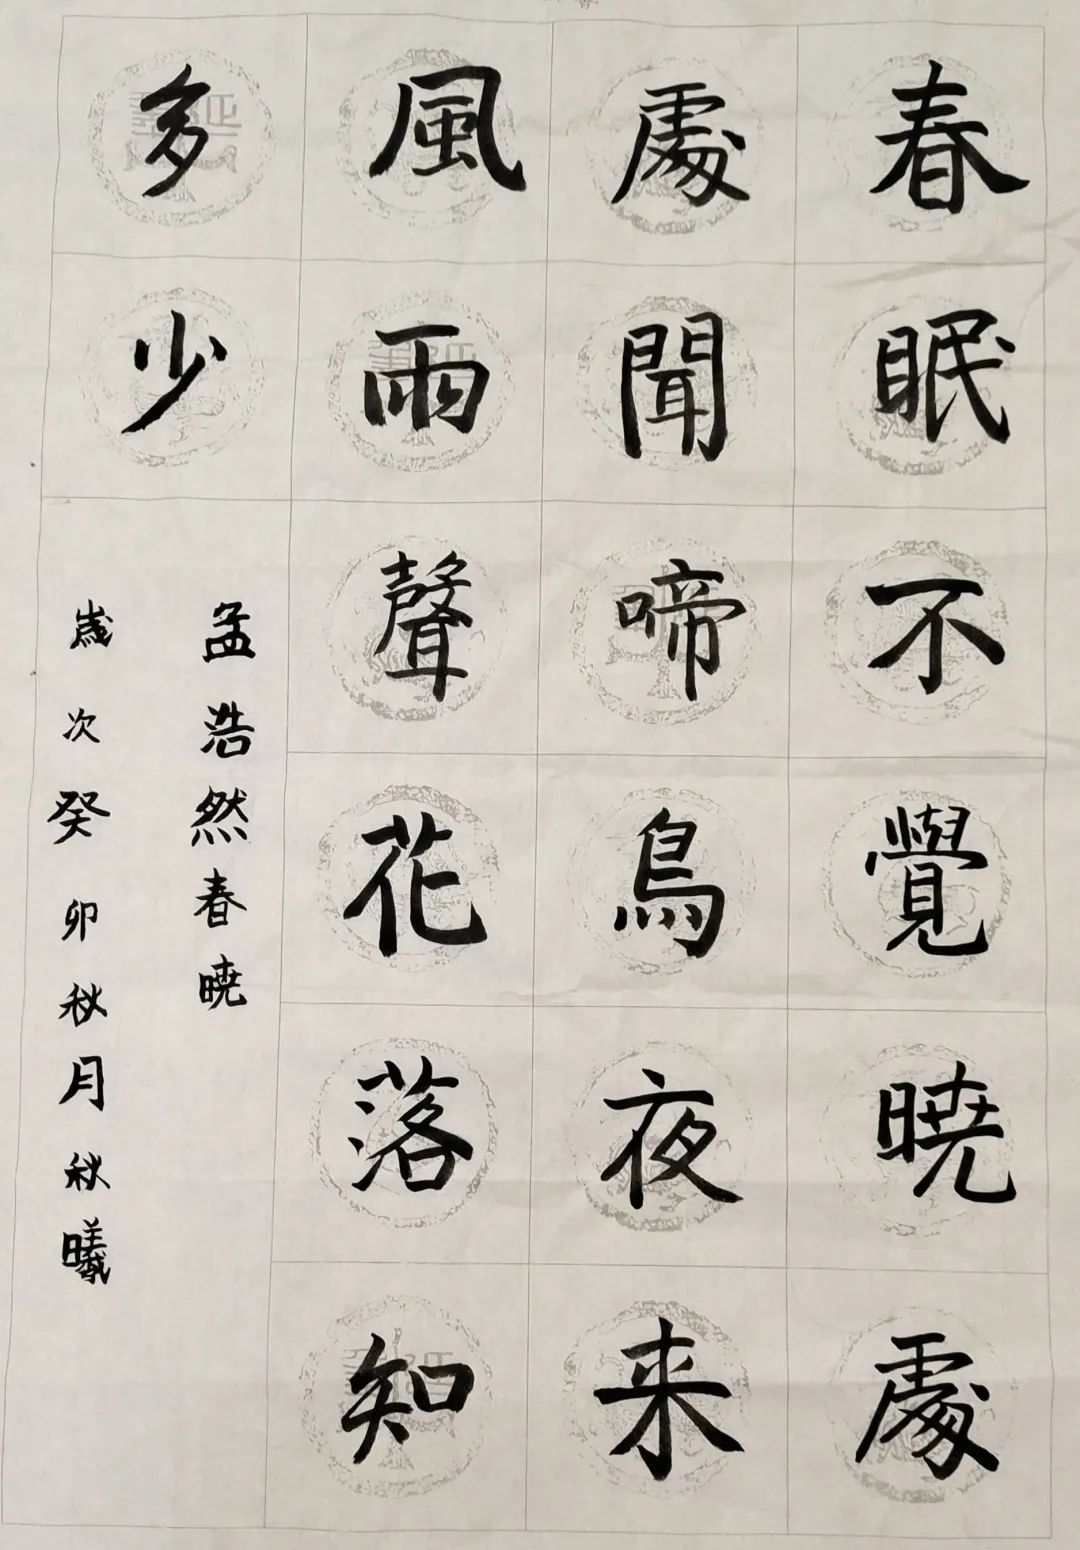 春眠不覺暁處
處聞啼鳥夜来
風雨聲花落知
多少
孟浩然春暁
歲次癸卯秋月秋曦